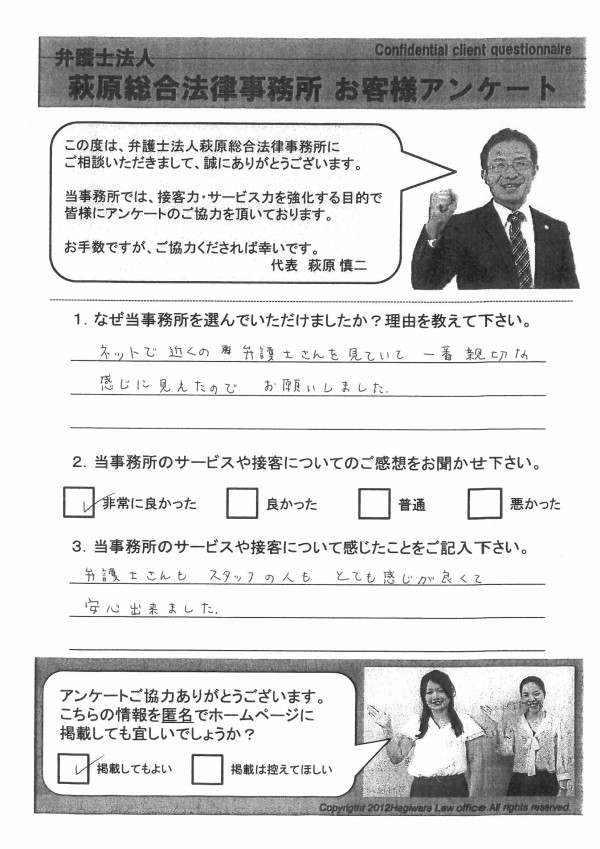 弁護士法人
Confidential client questionnaire
萩原総合法律事務所 お客様アンケート
この度は、弁護士法人萩原総合法律事務所に
ご相談いただきまして、誠にありがとうございます。
当事務所では、接客力・サービス力を強化する目的で
皆様にアンケートのご協力を頂いております。
お手数ですが、ご協力くだされば幸いです。
代表 萩原 慎二
1. なぜ当事務所を選んでいただけましたか？理由を教えて下さい。
ネットで 近くの 弁護士さんを見ていて 一番 親切な
感じに見えたので お願いしました.
2. 当事務所のサービスや接客についてのご感想をお聞かせ下さい。
非常に良かった 良かった 普通 悪かった
3. 当事務所のサービスや接客について感じたことをご記入下さい。
弁護士さんも スタッフの人も とても感じが良くて
安心出来ました.
アンケートご協力ありがとうございます。
こちらの情報を匿名でホームページに
掲載しても宜しいでしょうか？
掲載してもよい 掲載は控えてほしい
Copyright 2012Hagiwara Law office.All rights reserved.